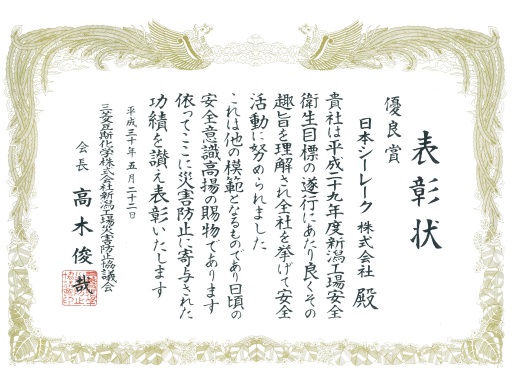 表彰状
優良賞
日本シーレーク 株式会社 殿
貴社は平成二十九年度新潟工場安全
衛生目標の遂行にあたり良くその
趣旨を理解され全社を挙げて安全
活動に努められました
これは他の模範となるものであり日頃の
安全意識高揚の賜物であります
依ってここに災害防止に寄与された
功績を讃え表彰いたします
平成三十年五月二十二日
三菱瓦斯化学株式会社新潟工場災害防止協議会
会長 高木俊哉